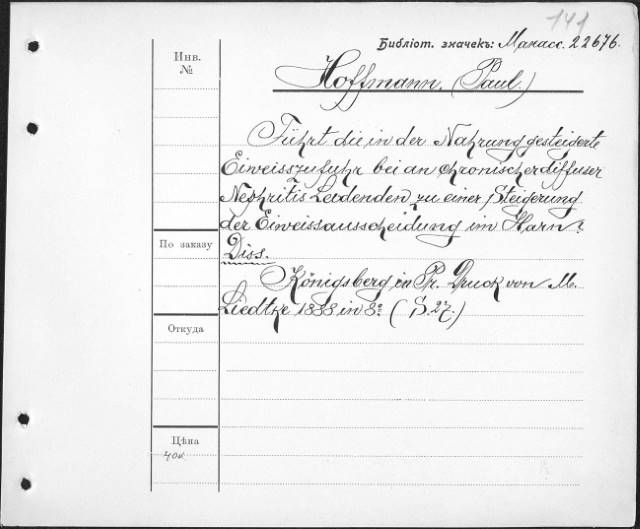 141
Библіот. значекъ: Манасс. 22676.
Инв.
№
Hoffmann. (Paul.)
Führt die in der Nahrung gesteigerte
Eiweisszufuhr bei an chronischer diffuser
Nephritis Leidenden zu einer Steigerung
der Eiweissausscheidung im Harn?
По заказу
Diss.
Königsberg in Pr. Druck von M.
Liedtke 1888 in 8º (S. 27.)
Откуда
Цѣна
40к